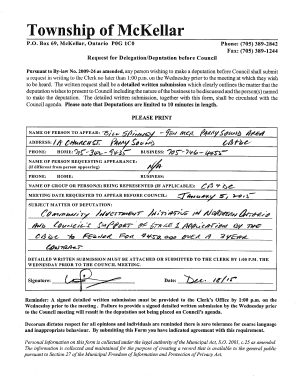 Township of McKellar
P.O. Box 69, McKellar, Ontario P0G 1C0 Phone: (705) 389-2842
Fax: (705) 389-1244
Request for Delegation/Deputation before Council
Pursuant to By-law No. 2009-24 as amended, any person wishing to make a deputation before Council shall submit
a request in writing to the Clerk no later than 1:00 p.m. on the Wednesday prior to the meeting at which they wish
to be heard. The written request shall be a detailed written submission which clearly outlines the matter that the
deputation wishes to present to Council including the nature of the business to be discussed and the person(s) named
to make the deputation. The detailed written submission, together with this form, shall be circulated with the
Council agenda. Please note that Deputations are limited to 10 minutes in length.
PLEASE PRINT
NAME OF PERSON TO APPEAR: Bill Spinney - Parry Sound Area
ADDRESS: 1A Church St Parry Sound CB&DC
PHONE: HOME: BUSINESS: 705-746-4455
NAME OF PERSON REQUESTING APPEARANCE:
(if different from person appearing) N/A
PHONE: HOME: BUSINESS:
NAME OF GROUP OR PERSON(S) BEING REPRESENTED (IF APPLICABLE): CB&DC
MEETING DATE REQUESTED TO APPEAR BEFORE COUNCIL: January 5, 2015
SUBJECT MATTER OF DEPUTATION:
Community Investment Initiative in Northern Ontario
and Council's support of Stage 1 application by the
CB&DC to FedNor for $450,000 over a 3 year
contract
DETAILED WRITTEN SUBMISSION MUST BE ATTACHED OR SUBMITTED TO THE CLERK BY 1:00 P.M. THE
WEDNESDAY PRIOR TO THE COUNCIL MEETING.
Signature: Date: Dec. 18/15
Reminder: A signed detailed written submission must be provided to the Clerk's Office by 1:00 p.m. on the
Wednesday prior to the meeting. Failure to provide a signed detailed submission by the Wednesday prior
to the Council meeting will result in the deputation not being placed on Council's agenda.
Decorum dictates respect for all opinions and individuals are reminded there is zero tolerance for coarse language
and inappropriate behaviour. By submitting this Form you have indicated agreement with this requirement.
Personal Information on this form is collected under the legal authority of the Municipal Act, S.O. 2001, c.25 as amended
The information is collected and maintained for the purpose of creating a record that is available to the general public
pursuant to Section 27 of the Municipal Freedom of Information and Protection of Privacy Act.